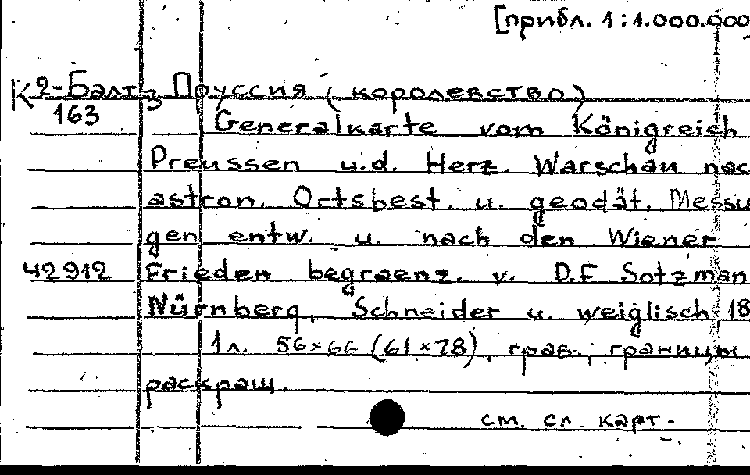 [прибл. 1:1.000.000
К 2-Балт 3 Пруссия (королевство)
163
Generalkarte vom Königreich
Preussen u.d. Herz. Warschau nac
astron. Ortsbest. u. geodät. Messu
gen entw. u. nach den Wiener
42912 Frieden begraenz. v. D.F Sotzman
Nürnberg, Schneider u. weiglisch, 18
1л. 56×66 (61×78), грав., границы
раскраш.
см. сл. карт.